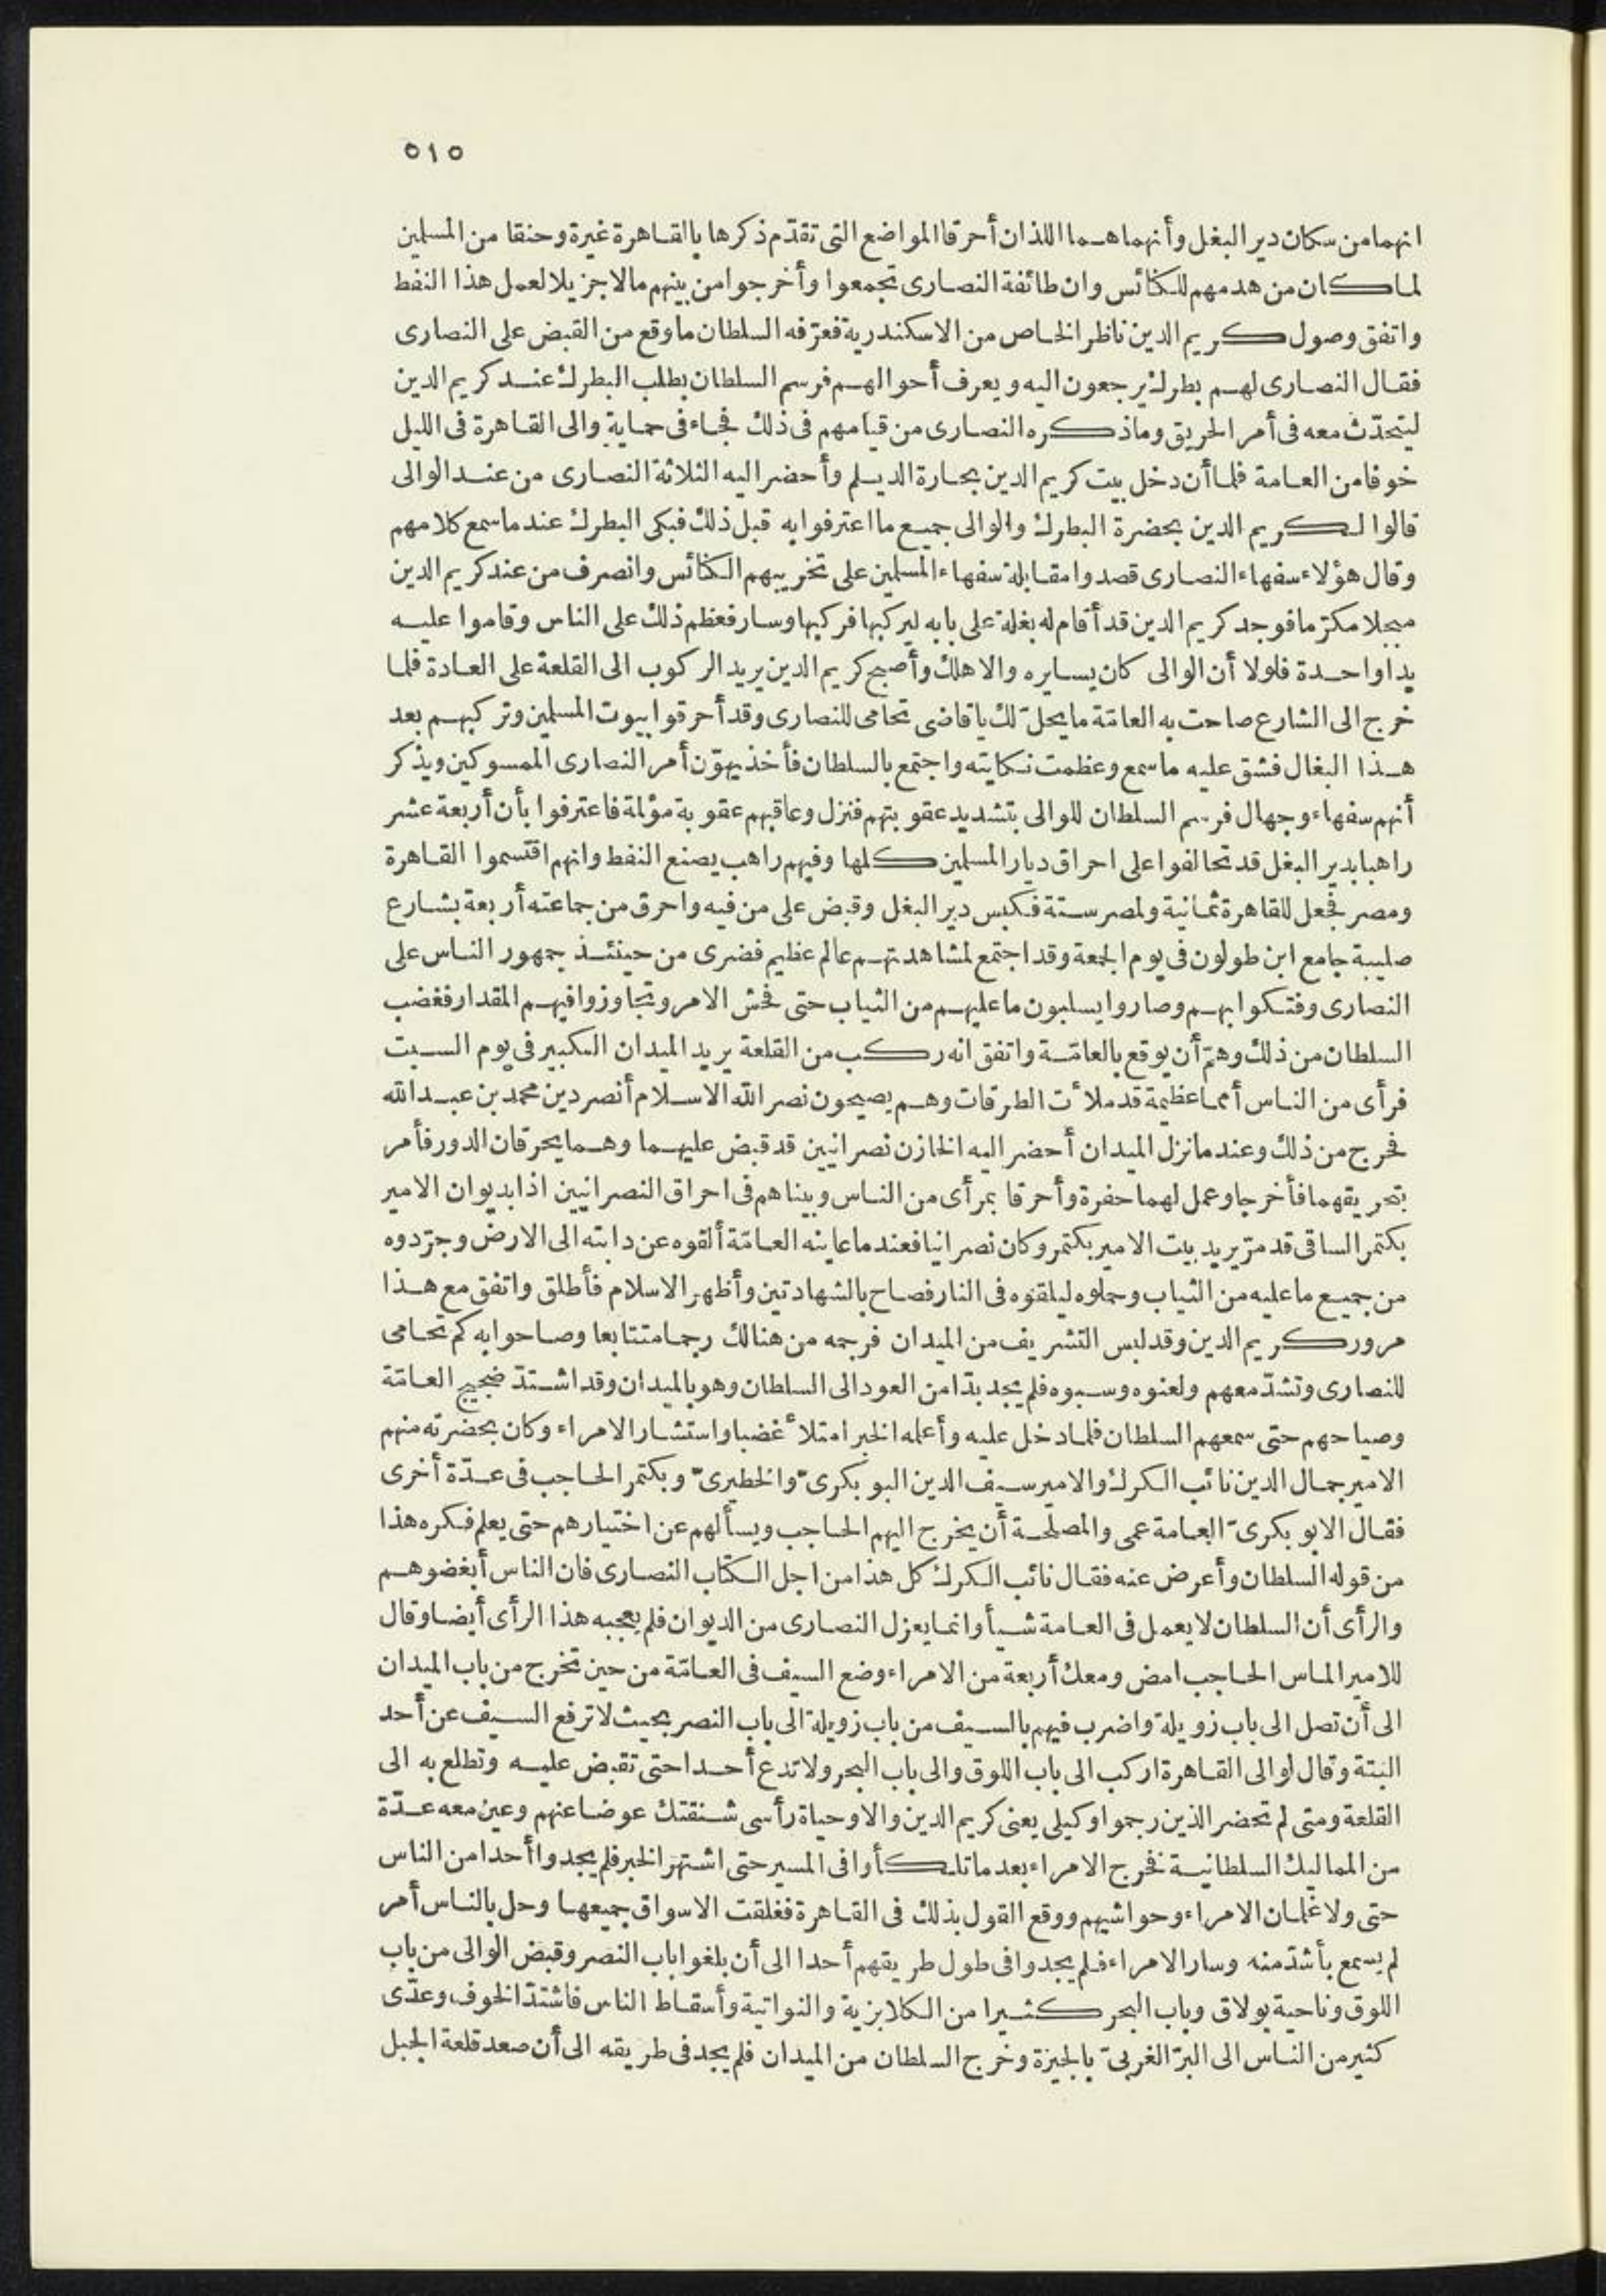 ٥١٥
انهما من سكان دير البغل وأنهما هما اللذان أحرقا المواضع التى تقدّم ذكرها بالقاهرة غيرة وحنقا من المسلمين
لما كان من هدمهم للكنائس وان طائفة النصارى تجمعوا وأخرجوا من بينهم مالا جزيلا لعمل هذا النفط
واتفق وصول كريم الدين ناظر الخاص من الاسكندرية فعرّفه السلطان ما وقع من القبض على النصارى
فقال النصارى لهم بطرك يرجعون اليه ويعرف أحوالهم فرسم السلطان بطلب البطرك عند كريم الدين
ليتحدّث معه فى أمر الحريق وما ذكره النصارى من قيامهم فى ذلك فجاء فى حماية والى القاهرة فى الليل
خوفا من العامة فلما أن دخل بيت كريم الدين بحارة الديلم وأحضر اليه الثلاثة النصارى من عند الوالى
قالوا لكريم الدين بحضرة البطرك والوالى جميع ما اعترفوا به قبل ذلك فبكى البطرك عند ما سمع كلامهم
وقال هؤلاء سفهاء النصارى قصدوا مقابلة سفهاء المسلمين على تخريبهم الكنائس وانصرف من عند كريم الدين
مبجلا مكرّما فوجد كريم الدين قد أقام له بغلة على بابه ليركبها فركبها وسار فعظم ذلك على الناس وقاموا عليه
يدا واحدة فلولا أن الوالى كان يسايره والا هلك وأصبح كريم الدين يريد الركوب الى القلعة على العادة فلما
خرج الى الشارع صاحت به العامّة ما يحلّ لك يا قاضى تحامى للنصارى وقد أحرقوا بيوت المسلمين وتركبهم بعد
هذا البغال فشق عليه ما سمع وعظمت نكايته واجتمع بالسلطان فأخذ يهوّن أمر النصارى الممسوكين ويذكر
أنهم سفهاء وجهال فرسم السلطان للوالى بتشديد عقوبتهم فنزل وعاقبهم عقوبة مؤلمة فاعترفوا بأن أربعة عشر
راهبا بدير البغل قد تحالفوا على احراق ديار المسلمين كلها وفيهم راهب يصنع النفط وانهم اقتسموا القاهرة
ومصر فجعل للقاهرة ثمانية ولمصر ستة فكبس دير البغل وقبض على من فيه واحرق من جماعته أربعة بشارع
صليبة جامع ابن طولون فى يوم الجمعة وقد اجتمع لمشاهدتهم عالم عظيم فضرى من حينئذ جمهور الناس على
النصارى وفتكوا بهم وصاروا يسلبون ما عليهم من الثياب حتى فحش الامر وتجاوزوا فيهم المقدار فغضب
السلطان من ذلك وهمّ أن يوقع بالعامّة واتفق انه ركب من القلعة يريد الميدان الكبير فى يوم السبت
فرأى من الناس أمما عظيمة قد ملأت الطرقات وهم يصيحون نصر الله الاسلام أنصر دين محمد بن عبد الله
فحرج من ذلك وعند ما نزل الميدان أحضر اليه الخازن نصرانيين قد قبض عليهما وهما يحرقان الدور فأمر
بتحريقهما فأخرجا وعمل لهما حفرة وأحرقا بمرأى من الناس وبيناهم فى احراق النصرانيين اذا بديوان الامير
بكتمر الساقى قد مرّ يريد بيت الامير بكتمر وكان نصرانيا فعند ما عاينه العامّة ألقوه عن دابته الى الارض وجرّدوه
من جميع ما عليه من الثياب وحملوه ليلقوه فى النار فصاح بالشهادتين وأظهر الاسلام فأطلق واتفق مع هذا
مرور كريم الدين وقد لبس التشريف من الميدان فرجمه من هنالك رجما متتابعا وصاحوا به كم تحامى
للنصارى وتشدّ معهم ولعنوه وسبوه فلم يجد بدّا من العود الى السلطان وهو بالميدان وقد اشتدّ ضجيج العامّة
وصياحهم حتى سمعهم السلطان فلما دخل عليه وأعلمه الخبر امتلأ غضبا واستشار الامراء وكان بحضرته منهم
الامير جمال الدين نائب الكرك والامير سيف الدين البوبكرىّ والخطيرىّ وبكتمر الحاجب فى عدّة أخرى
فقال الابوبكرىّ العامة عمى والمصلحة أن يخرج اليهم الحاجب ويسألهم عن اختيارهم حتى يعلم فكره هذا
من قوله السلطان وأعرض عنه فقال نائب الكرك كل هذا من اجل الكتاب النصارى فان الناس أبغضوهم
والرأى أن السلطان لا يعمل فى العامة شيأ وانما يعزل النصارى من الديوان فلم يعجبه هذا الرأى أيضا وقال
للامير الماس الحاجب امض ومعك أربعة من الامراء وضع السيف فى العامّة من حين تخرج من باب الميدان
الى أن تصل الى باب زويلة واضرب فيهم بالسيف من باب زويلة الى باب النصر بحيث لا ترفع السيف عن أحد
البتة وقال لوالى القاهرة اركب الى باب اللوق والى باب البحر ولا تدع أحدا حتى تقبض عليه وتطلع به الى
القلعة ومتى لم تحضر الذين رجموا وكيلى يعنى كريم الدين والا وحياة رأسى شنقتك عوضا عنهم وعين معه عدّة
من المماليك السلطانية فخرج الامراء بعد ما تلكأوا فى المسير حتى اشتهر الخبر فلم يجدوا أحدا من الناس
حتى ولا غلمان الامراء وحواشيهم ووقع القول بذلك فى القاهرة فغلقت الاسواق جميعها وحل بالناس أمر
لم يسمع بأشدّ منه وسار الامراء فلم يجدوا فى طول طريقهم أحدا الى أن بلغوا باب النصر وقبض الوالى من باب
اللوق وناحية بولاق وباب البحر كثيرا من الكلابزية والنواتية وأسقاط الناس فاشتدّ الخوف وعدّى
كثير من الناس الى البرّ الغربىّ بالجيزة وخرج السلطان من الميدان فلم يجد فى طريقه الى أن صعد قلعة الجبل